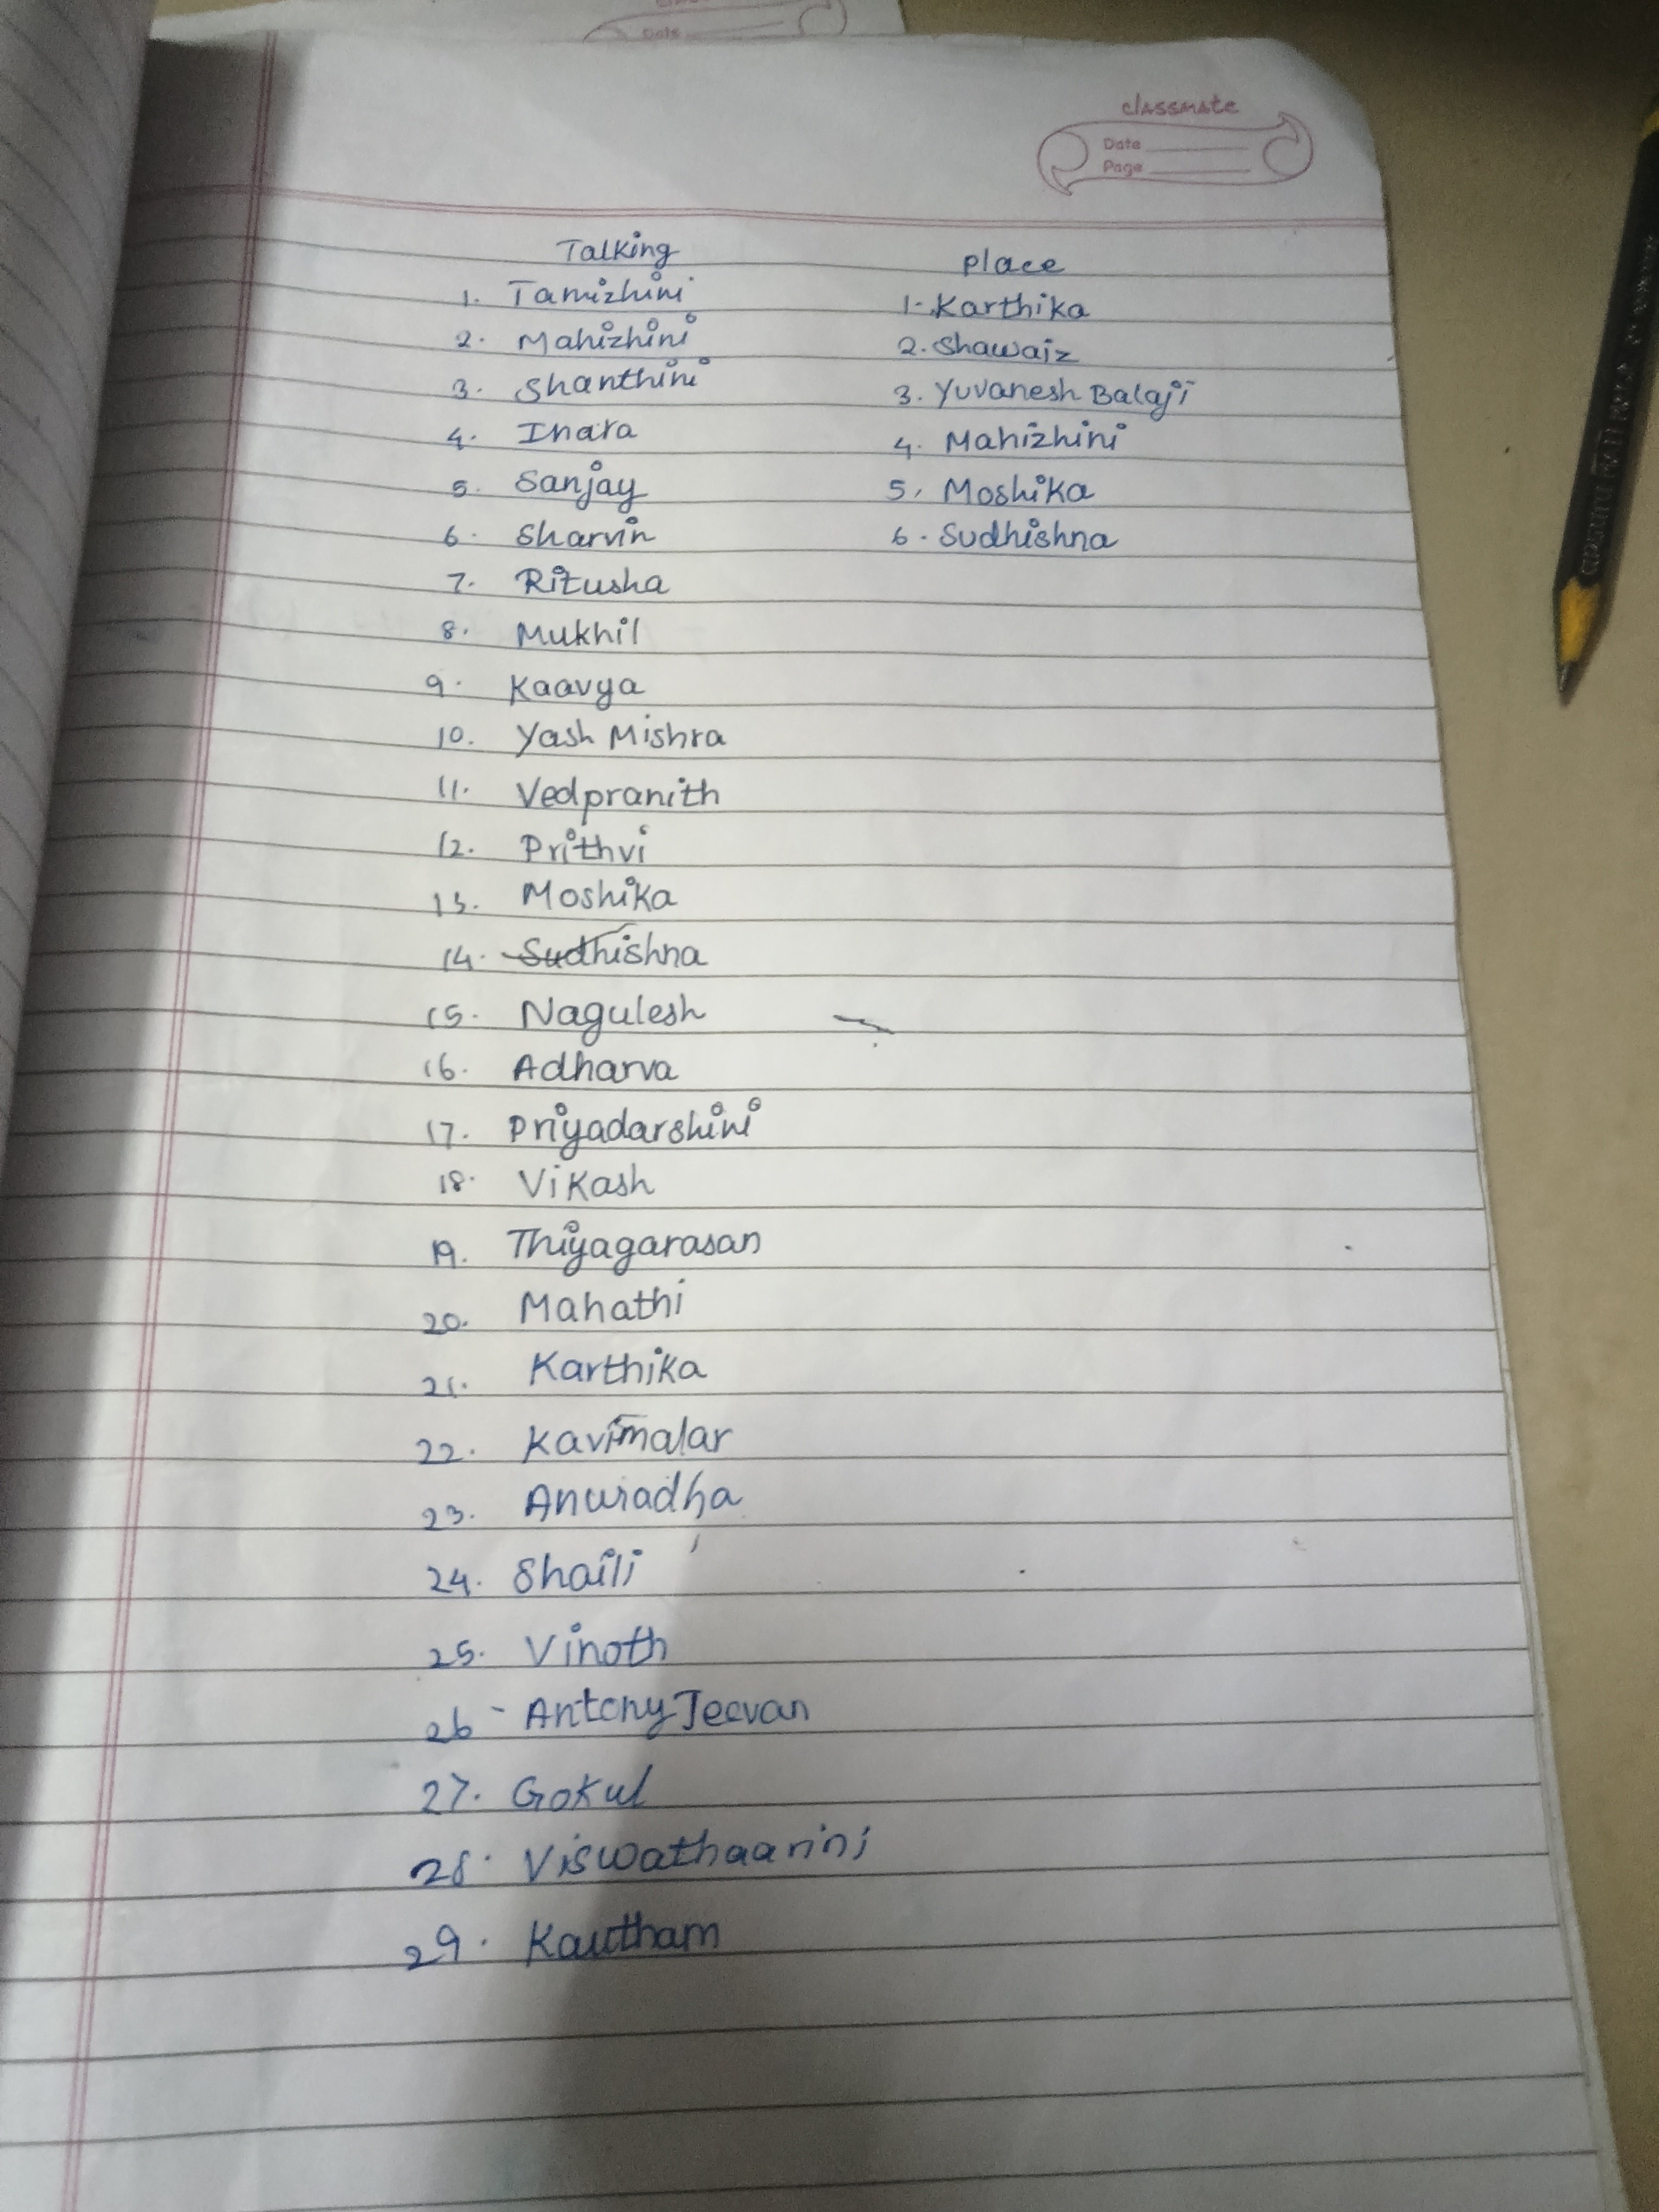 classmate
Date
Page
Talking
1. Tamizhini
2. Mahizhini
3. Shanthini
4. Inara
5. Sanjay
6. Sharvin
7. Ritusha
8. Mukhil
9. Kaavya
10. Yash Mishra
11. Vedpranith
12. Prithvi
13. Moshika
14. Sudhishna
15. Nagulesh
16. Adharva
17. Priyadarshini
18. Vikash
19. Thiyagarasan
20. Mahathi
21. Karthika
22. Kavimalar
23. Anuradha
24. Shaili
25. Vinoth
26 - Antony Jeevan
27. Gokul
28. Viswathaarini
29. Kautham
place
1. Karthika
2. Shawaiz
3. Yuvanesh Balaji
4. Mahizhini
5. Moshika
6. Sudhishna